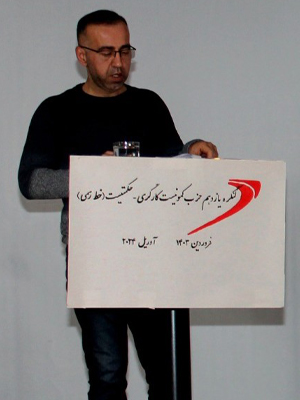 کنگره یازدهم حزب کمونیست کارگری - حکمتیست (خط رسمی)
فروردین ۱۴۰۳ آوریل ۲۰۲۴